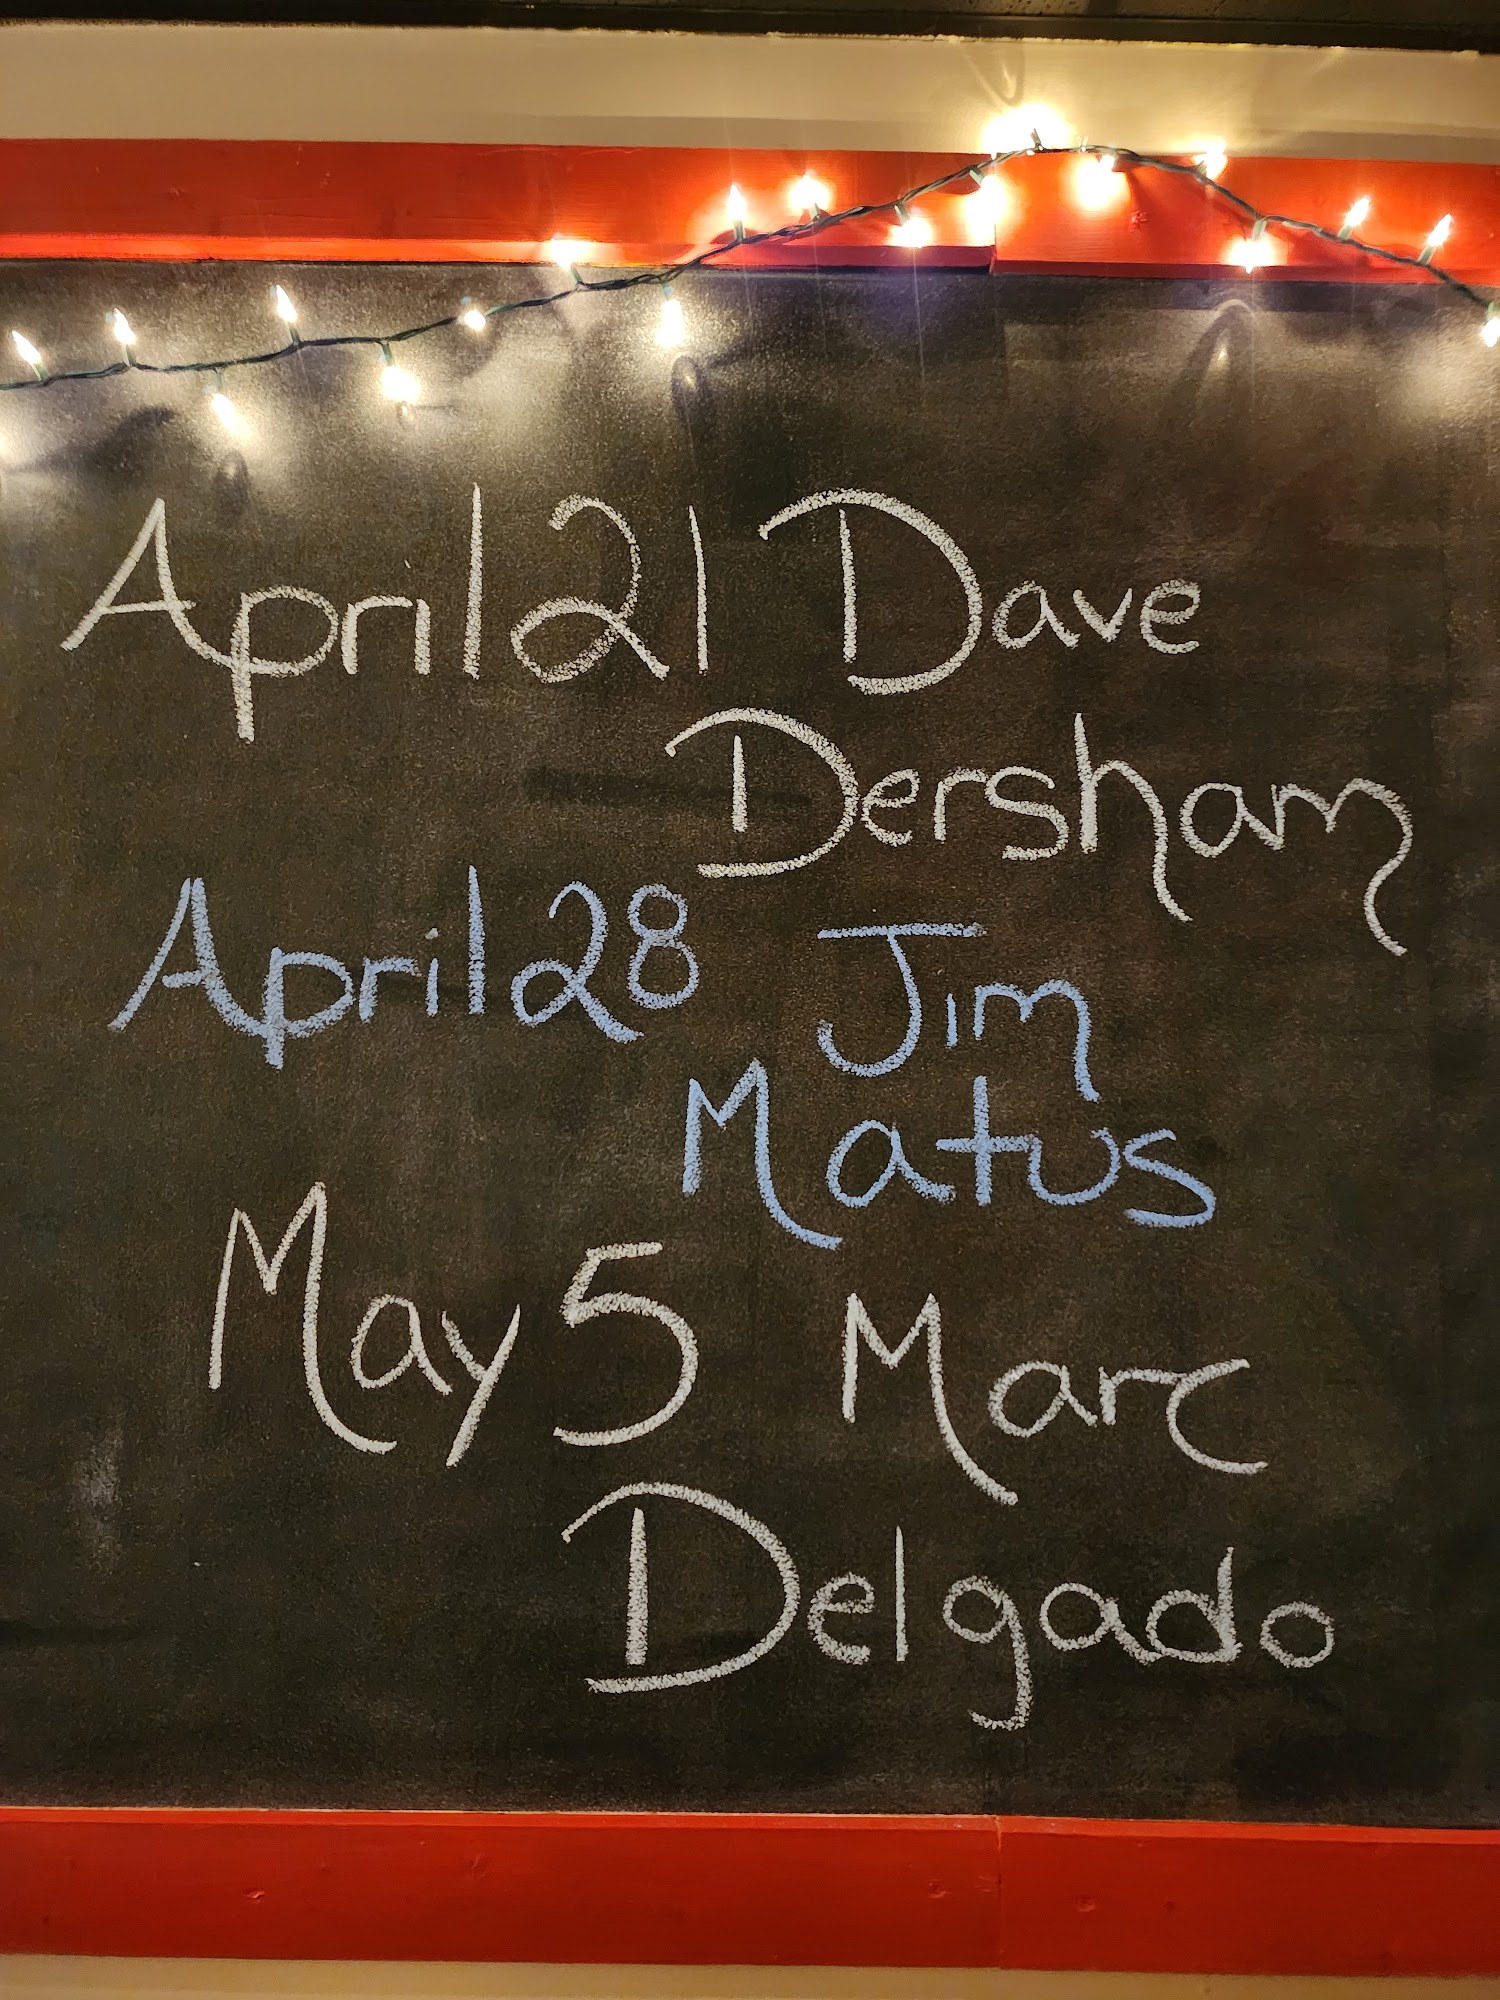 April 21 Dave
Dersham
April 28 Jim
Matus
May 5 Marc
Delgado